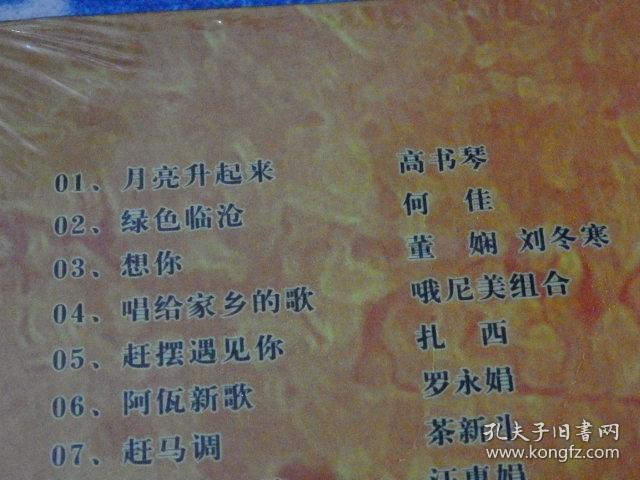 01、月亮升起来 高书琴
02、绿色临沧 何 佳
03、想你 董 娴 刘冬寒
04、唱给家乡的歌 哦尼美组合
05、赶摆遇见你 扎 西
06、阿佤新歌 罗永娟
07、赶马调 茶新斗
孔夫子旧書网
www.kongfz.com